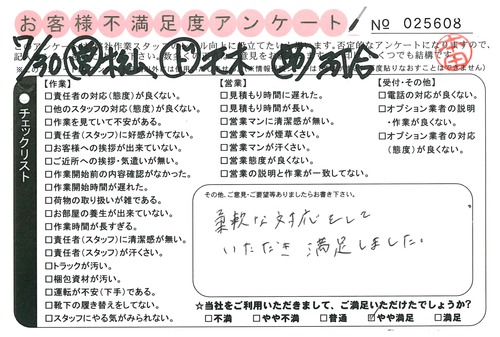 お客様不満足度アンケート
No 025608
7/30
チェックリスト
【作業】
□責任者の対応(態度)が良くない。
□他のスタッフの対応(態度)が良くない。
□作業を見ていて不安がある。
□責任者(スタッフ)に好感が持てない。
□お客様への挨拶が出来ていない。
□ご近所への挨拶・気遣いが無い。
□作業開始前の内容確認がなかった。
□作業開始時間が遅れた。
□荷物の取り扱いが雑である。
□お部屋の養生が出来ていない。
□作業時間が長すぎる。
□責任者(スタッフ)に清潔感が無い。
□責任者(スタッフ)が汗くさい。
□トラックが汚い。
□梱包資材が汚い。
□運転が不安(下手)である。
□靴下の履き替えをしてない。
□スタッフにやる気がみられない。
【営業】
□見積もり時間に遅れた。
□見積もり時間が長い。
□営業マンに清潔感が無い。
□営業マンが煙草くさい。
□営業マンが汗くさい。
□営業態度が良くない。
□営業の説明と作業が一致してない。
【受付・その他】
□電話の対応が良くない。
□オプション業者の説明
・作業が良くない。
□オプション業者の対応
(態度)が良くない。
その他、ご意見・ご要望等ありましたらお書き下さい。
柔軟な対応をして
いただき 満足しました。
☆当社をご利用いただきまして、ご満足いただけたでしょうか?
□不満 □やや不満 □普通 ☑やや満足 □満足